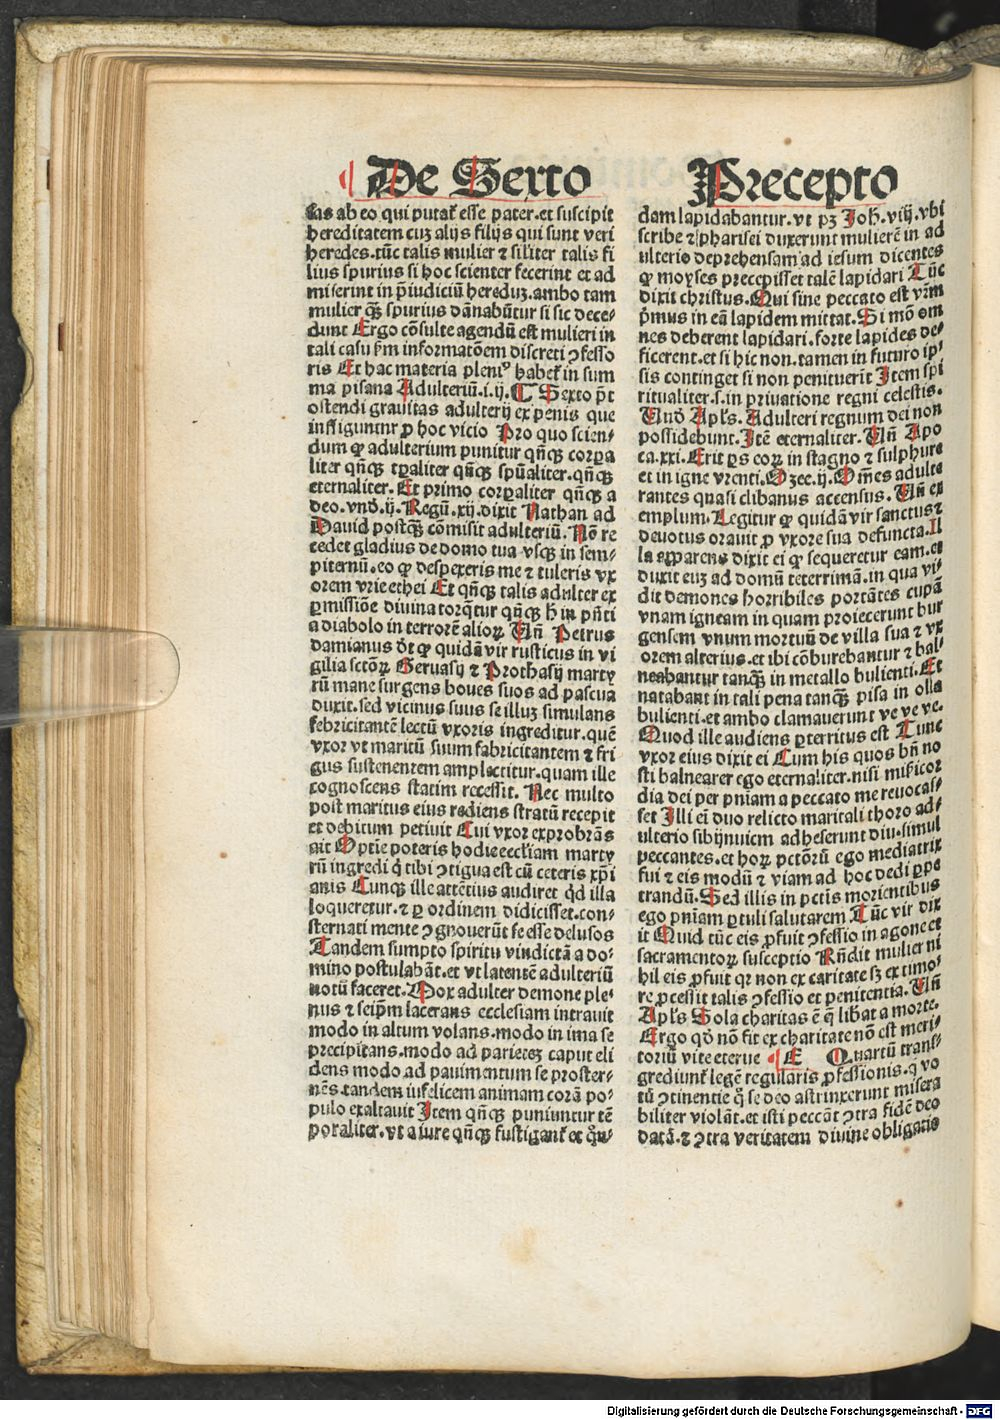 De Sexto Precepto
cas ab eo qui putat̃ esse pater.et suscipit
hereditatem cuʒ alijs filijs qui sunt veri
heredes.tũc talis mulier ⁊ siľiter talis fi
lius spurius si hoc scienter fecerint et ad
miserint in p̃iudiciũ hereduʒ.ambo tam
mulier q̃ʒ spurius dãnabũtur si sic dece-
dunt Ergo cõsulte agendũ est mulieri in
tali casu ẜm informatõem discreti ꝯfesso
ris Et hac materia pleniꝰ habet̃ in sum
ma pisana Adulteriũ.i.ij. ¶ Sexto p̃t
ostendi grauitas adulterij ex penis que
infliguntur ꝓ hoc vicio Pro quo scien-
dum ꝙ adulterium punitur qñqʒ corꝑa
liter qñqʒ tꝑaliter qñqʒ spũaliter.qñqʒ
eternaliter. Et primo corꝑaliter qñqʒ a
deo.vnď.ij.Regũ.xij.dixit Nathan ad
Dauid postq̃ʒ cõmisit adulteriũ. Nõ re
cedet gladius de domo tua vsqʒ in sem-
piternũ.eo ꝙ despexeris me ⁊ tuleris vx
orem vrie ethei Et qñqʒ talis adulter ex
ꝑmissiõe diuina torq̃tur qñqʒ h̃ in pñti
a diabolo in terrorẽ alioꝝ. Vñ Petrus
damianus dt̃ ꝙ quidã vir rusticus in vi
gilia sctõꝝ Geruasij ⁊ Prothasij marty
rũ mane surgens boues suos ad pascua
duxit.sed vicinus suus se illuʒ simulans
febricitantẽ lectũ vxoris ingreditur.quẽ
vxor vt maritũ suum fabricitantem ⁊ fri
gus sustenentem amplectitur.quam ille
cognoscens statim recessit. Nec multo
post maritus eius rediens stratũ recepit
et debitum petiuit Cui vxor exprobrãs
ait Optie poteris hodie ecc̃liam marty
rũ ingredi q̃ tibi ꝯtigua est cũ ceteris xp̃i
anis Cunqʒ ille attẽtius audiret qď illa
loqueretur.⁊ ꝑ ordinem didicisset.con-
sternati mente ꝯgnouerũt se esse delusos
Tandem sumpto spiritu vindictã a do-
mino postulabãt.et vt latentẽ adulteriũ
notũ faceret.Mox adulter demone ple-
nus ⁊ seip̃m lacerans ecclesiam intrauit
modo in altum volans.modo in ima se
precipitans.modo ad parieteʒ caput eli
dens modo ad pauimentum se proster-
nẽs.tandem infelicem animam corã po-
pulo exaltauit Item qñqʒ puniuntur tẽ
poraliter.vt a iure qñqʒ fustigant̃ et
dam lapidabantur.vt pʒ Joh̃.viij.vbi
scribe ⁊ pharisei duxerunt mulierẽ in ad
ulterio deprehensam ad iesum dicentes
ꝙ moyses precepisset talẽ lapidari Tũc
dixit christus.Qui sine peccato est vr̃m
p̃mus in eã lapidem mittat.Si mõ om
nes deberent lapidari.forte lapides de-
ficerent.et si hic non.tamen in futuro ip-
sis continget si non penituerĩt Item spi
ritualiter.s.in priuatione regni celestis.
Vnď Apľs. Adulteri regnum dei non
possidebunt.Itẽ eternaliter. Vñ Apo
ca.xxi.Erit ꝑs eoꝝ in stagno ⁊ sulphure
et in igne vrenti.Ozee.ij.Om̃es adulte
rantes quasi clibanus accensus. Vñ ex
emplum.Legitur ꝙ quidã vir sanctus ⁊
deuotus orauit ꝓ vxore sua defuncta.Il
la apparens dixit ei ꝙ sequeretur eam.et
duxit euʒ ad domũ teterrimã.in qua vi-
dit demones horribiles portãtes cupã
vnam igneam in quam proiecerunt bur
gensem vnum mortuũ de villa sua ⁊ vx
orem alterius.et ibi cõburebantur ⁊ bal-
neabantur tanq̃ʒ in metallo bulienti.Et
natabant in tali pena tanq̃ʒ pisa in olla
bulienti.et ambo clamauerunt ve ve ve.
Quod ille audiens ꝑterritus est Tunc
vxor eius dixit ei Cum his quos bñ no
sti balnearer ego eternaliter.nisi mĩsericor
dia dei per pniam a peccato me reuocas-
set Illi ei duo relicto maritali thoro ad-
ulterio sibijnuicem adheserunt diu.simul
peccantes.et hoꝝ pctõrũ ego mediatrix
fui ⁊ eis modũ ⁊ viam ad hoc dedi ꝑpe
trandũ.Sed illis in pctis morientibus
ego pniam ꝑtuli salutarem Tũc vir dix
it Quid tũc eis ꝓfuit ꝯfessio in agone et
sacramentoꝝ susceptio Rñdit mulier ni
hil eis ꝓfuit qꝛ non ex caritate sʒ ex timo-
re ꝓcessit talis ꝯfessio et penitentia. Vñ
Apľs Sola charitas ẽ q̃ libat a morte.
Ergo qď non fit ex charitate nõ est meri-
toriũ vite eterne ¶ E Quartũ trans-
grediunt̃ legẽ regularis ꝓfessionis.q̃ vo
tũ ꝯtinentie q̃ se deo astrinxerunt misera
biliter violãt.et isti peccãt ꝯtra fidẽ deo
datã.⁊ ꝯtra veritatem diuine obligatio
Digitalisierung gefördert durch die Deutsche Forschungsgemeinschaft - DFG